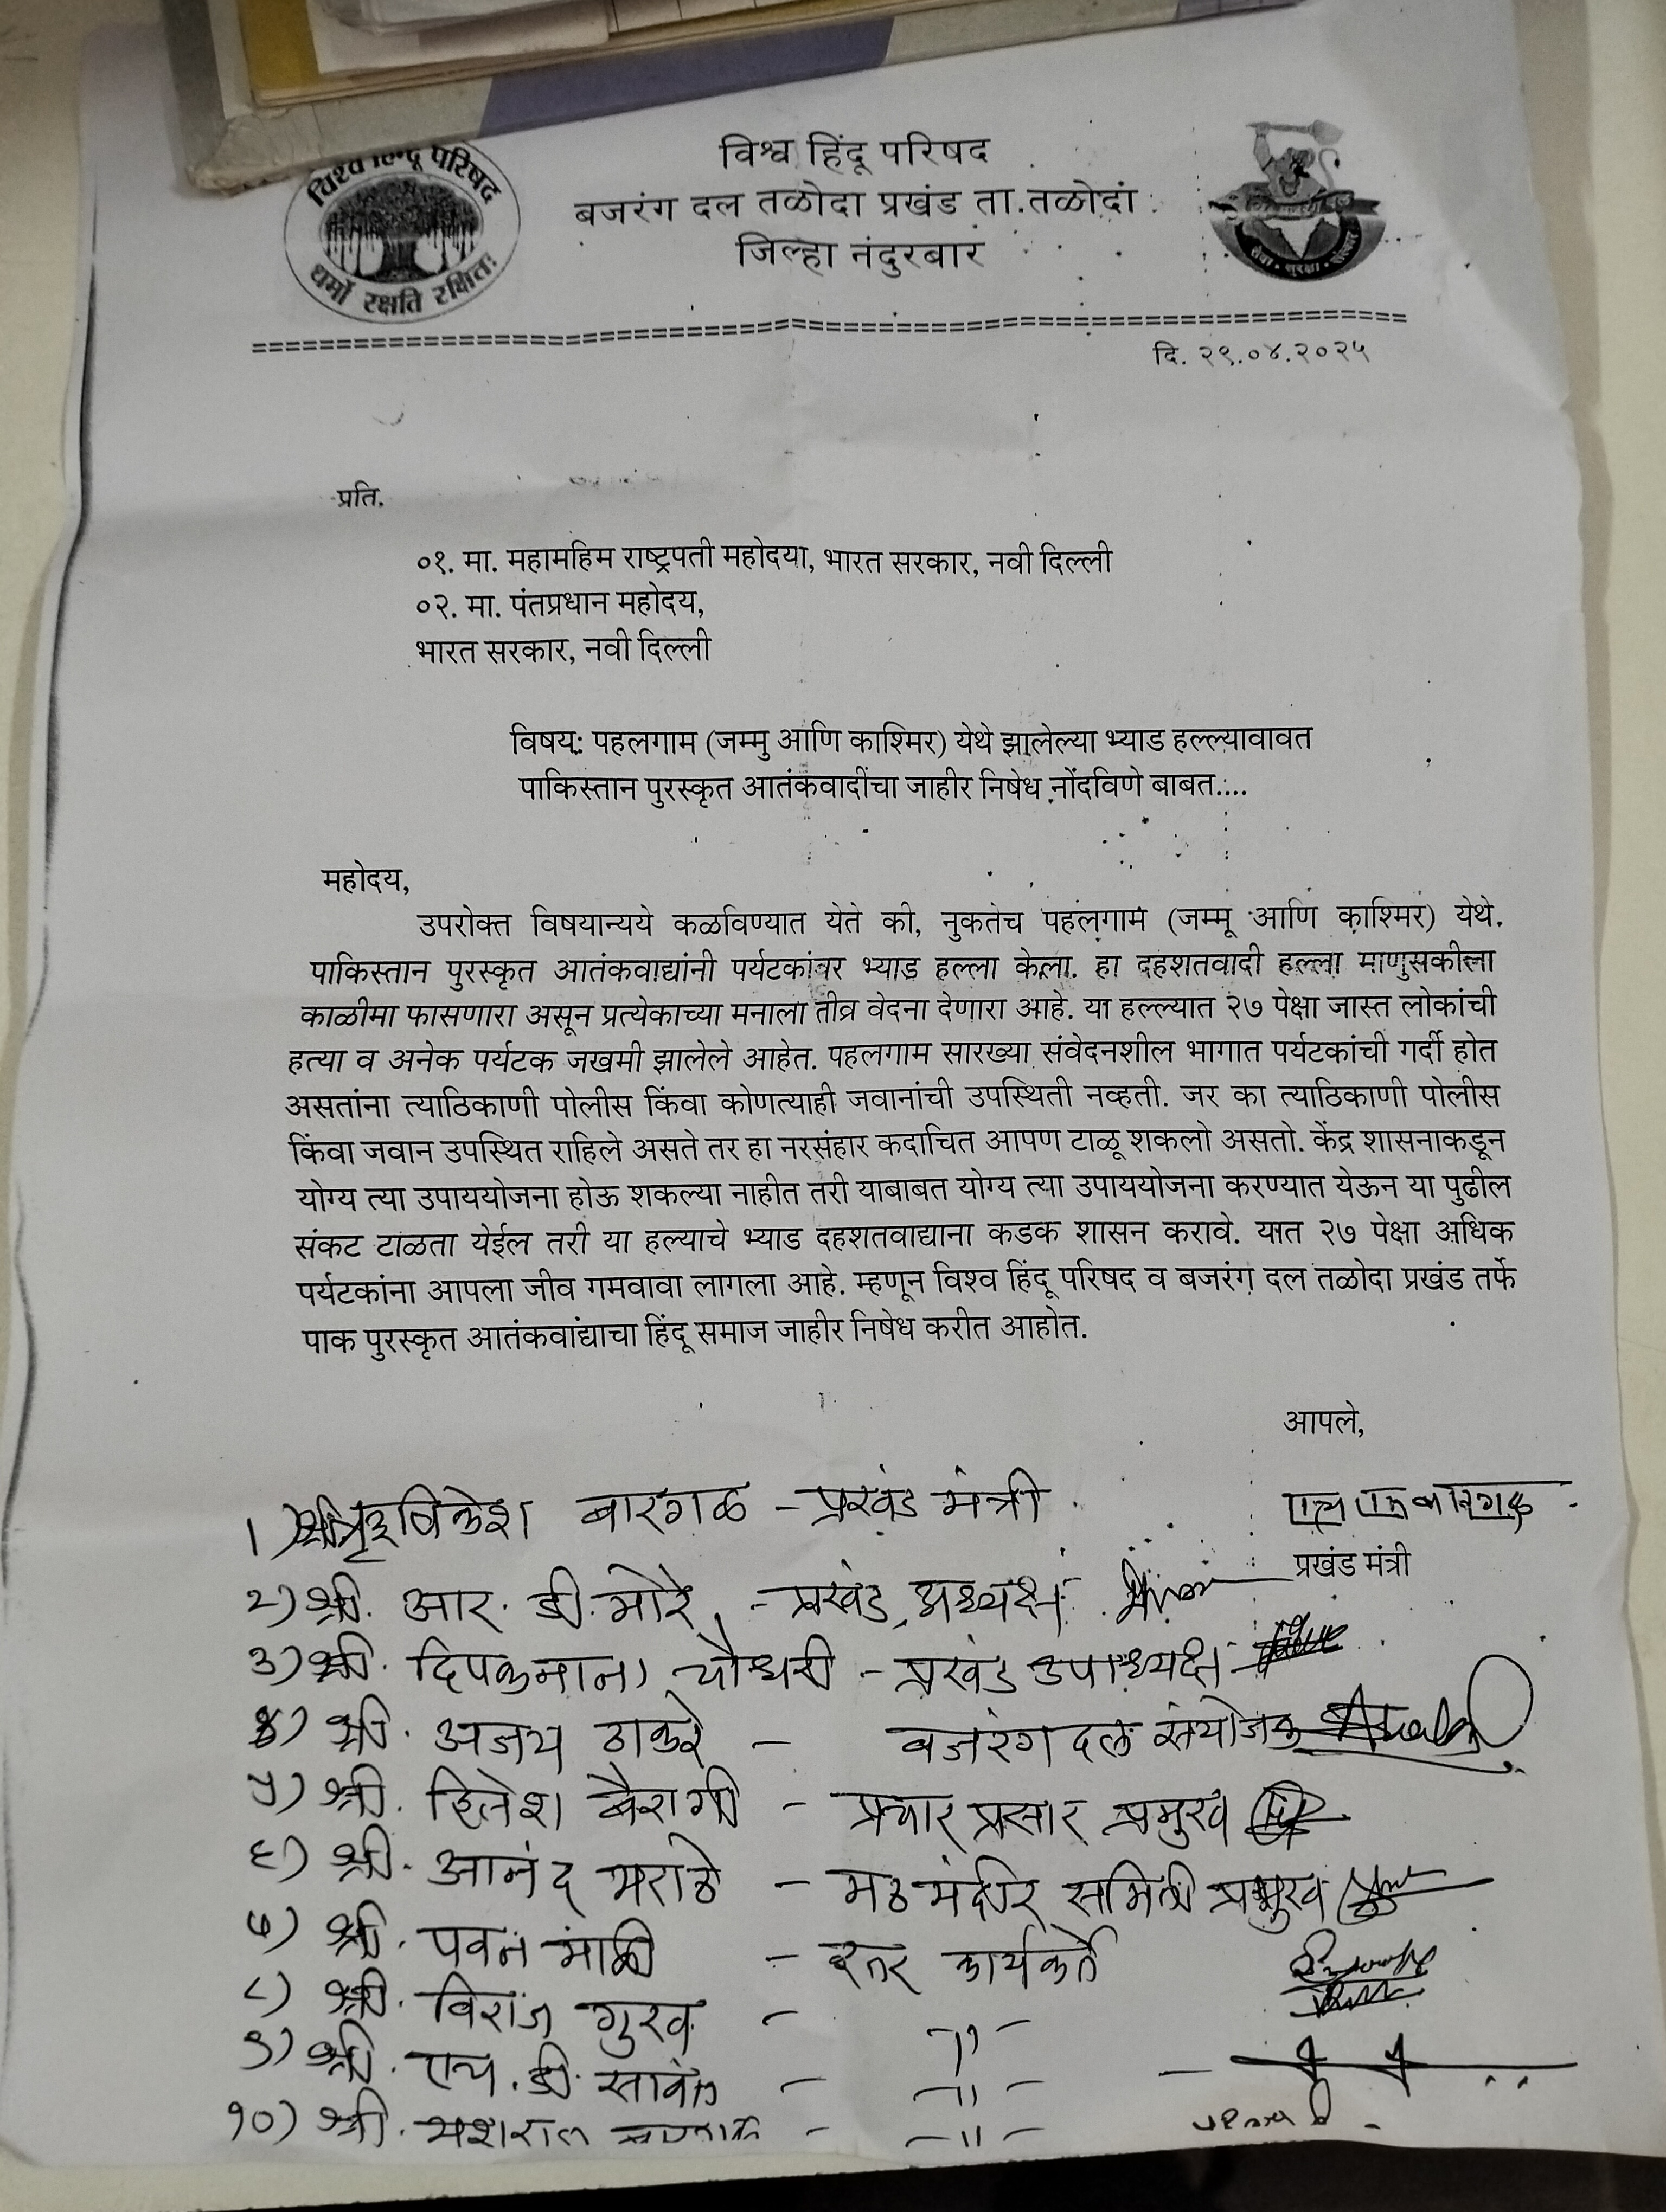 विश्व हिंदू परिषद
धर्मो रक्षति रक्षितः
विश्व हिंदू परिषद
बजरंग दल तळोदा प्रखंड ता.तळोदा
जिल्हा नंदुरबार
सेवा • सुरक्षा • संस्कार
दि. २९.०४.२०२५
प्रति,
०१. मा. महामहिम राष्ट्रपती महोदया, भारत सरकार, नवी दिल्ली
०२. मा. पंतप्रधान महोदय,
भारत सरकार, नवी दिल्ली
विषय: पहलगाम (जम्मु आणि काश्मिर) येथे झालेल्या भ्याड हल्ल्यावावत
पाकिस्तान पुरस्कृत आतंकवादींचा जाहीर निषेध नोंदविणे बाबत....
महोदय,
उपरोक्त विषयान्यये कळविण्यात येते की, नुकतेच पहलगाम (जम्मू आणि काश्मिर) येथे.
पाकिस्तान पुरस्कृत आतंकवाद्यांनी पर्यटकांवर भ्याड हल्ला केला. हा दहशतवादी हल्ला माणुसकीला
काळीमा फासणारा असून प्रत्येकाच्या मनाला तीव्र वेदना देणारा आहे. या हल्ल्यात २७ पेक्षा जास्त लोकांची
हत्या व अनेक पर्यटक जखमी झालेले आहेत. पहलगाम सारख्या संवेदनशील भागात पर्यटकांची गर्दी होत
असतांना त्याठिकाणी पोलीस किंवा कोणत्याही जवानांची उपस्थिती नव्हती. जर का त्याठिकाणी पोलीस
किंवा जवान उपस्थित राहिले असते तर हा नरसंहार कदाचित आपण टाळू शकलो असतो. केंद्र शासनाकडून
योग्य त्या उपाययोजना होऊ शकल्या नाहीत तरी याबाबत योग्य त्या उपाययोजना करण्यात येऊन या पुढील
संकट टाळता येईल तरी या हल्याचे भ्याड दहशतवाद्याना कडक शासन करावे. यात २७ पेक्षा अधिक
पर्यटकांना आपला जीव गमवावा लागला आहे. म्हणून विश्व हिंदू परिषद व बजरंग दल तळोदा प्रखंड तर्फे
पाक पुरस्कृत आतंकवांद्याचा हिंदू समाज जाहीर निषेध करीत आहोत.
आपले,
१) बारगळ - प्रखंड मंत्री
प्रखंड मंत्री
२) श्री. आर. डी. मोरे - प्रखंड अध्यक्ष
३) श्री. चौधरी - प्रखंड उपाध्यक्ष
४) श्री. अजय ठाकरे - बजरंग दल संयोजक
५) श्री. हितेश बैरागी - प्रचार प्रसार प्रमुख
६) श्री. आनंद मराठे - मठ मंदीर समिती प्रमुख
७) श्री. पवन माळी - इतर कार्यकर्ते
८) श्री. विराज गुरव - -"-
९) श्री. एच. डी. सावंत - -"-
१०) श्री. - -"-